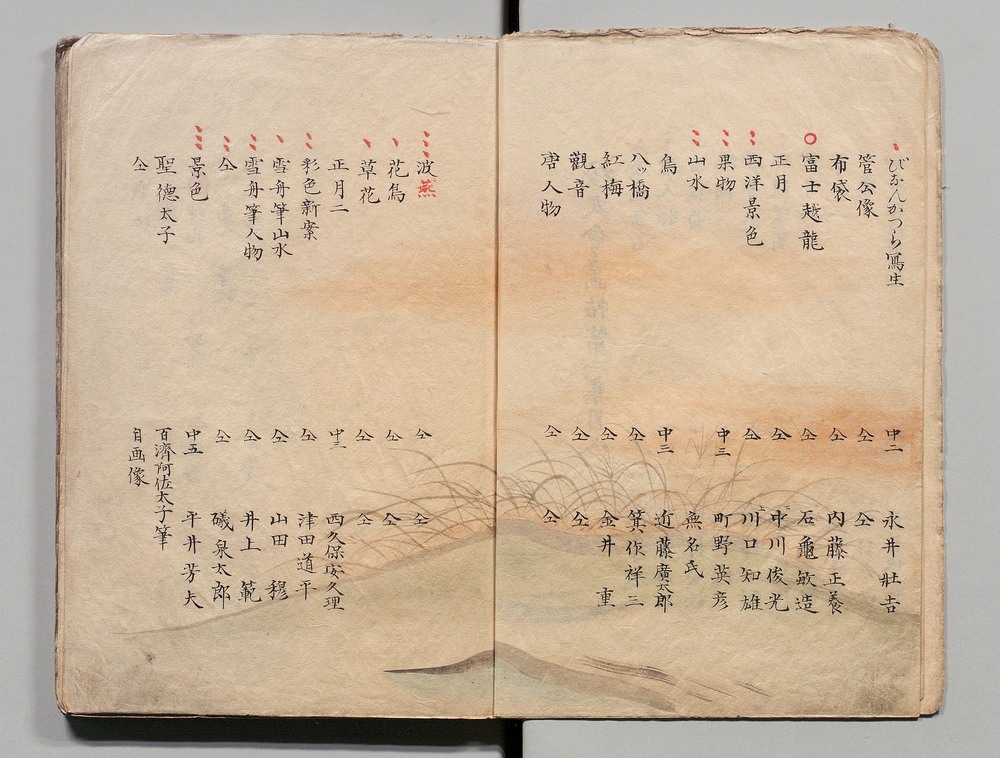 びなんかつら寫生 中二 永井壯吉
管公像 仝 仝
布袋 仝 内藤正養
富士越龍 仝 石龜敏造
正月 仝 中川俊光
西洋景色 仝 川口知雄
果物 中三 町野英彦
山水 無名氏
鳥 中三 近藤廣太郎
八ッ橋 仝 箕作祥三
紅梅 仝 金井重
觀音 仝 仝
唐人物 仝 仝
波燕 仝 仝
花鳥 仝 仝
草花 仝 仝
正月二 中三 西久保安久理
彩色新案 仝 津田道平
雪舟筆山水 仝 山田穆
雪舟筆人物 仝 井上範
仝 仝 礒泉太郎
景色 中五 平井芳夫
聖德太子 百濟阿佐太子筆
仝 自画像